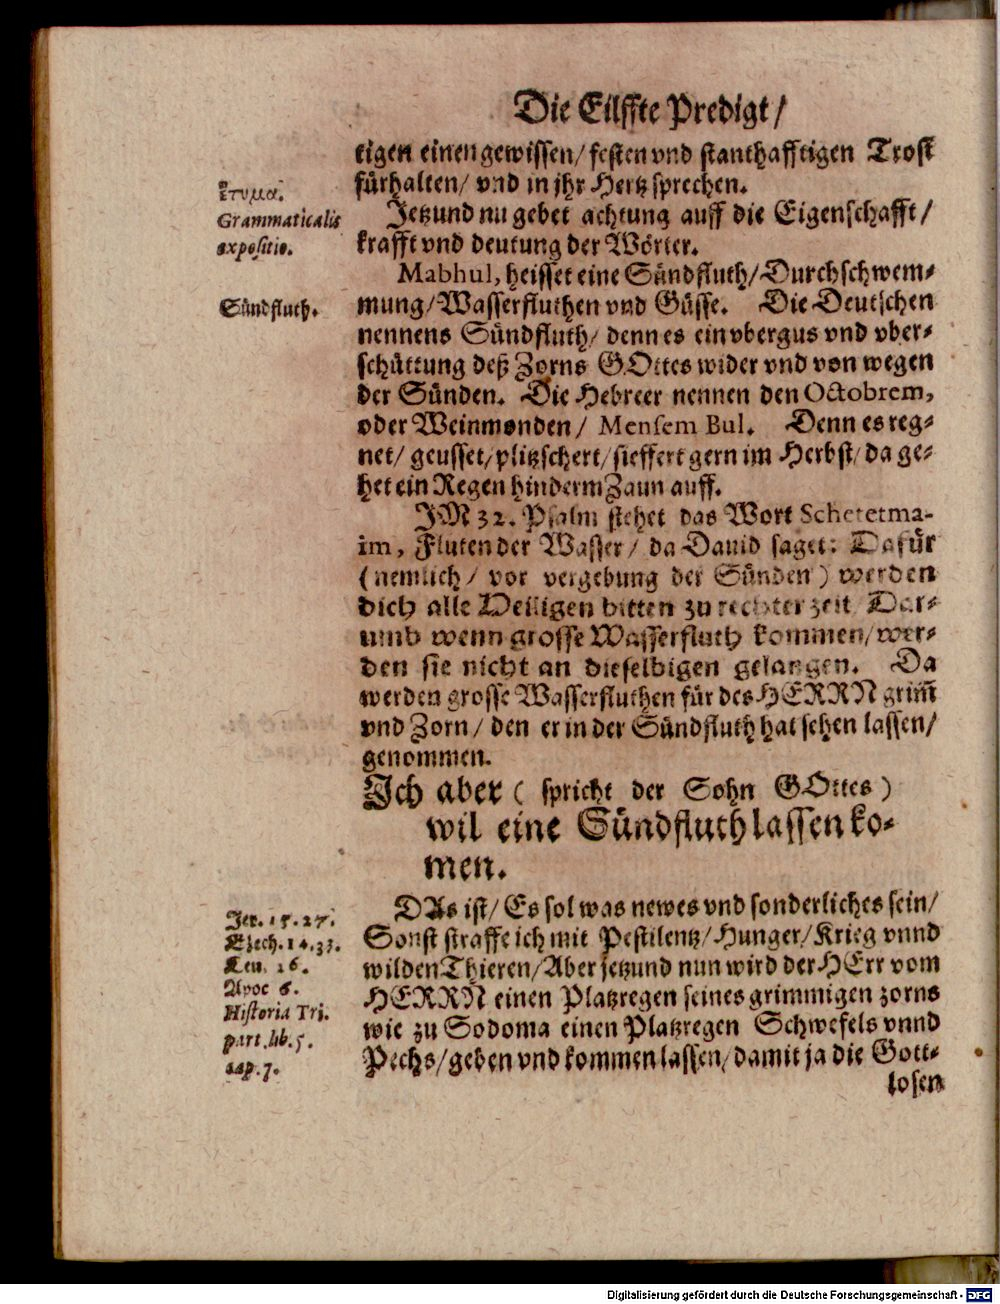 Die Eilffte Predigt/
tigen einen gewissen/ festen vnd stanthafftigen Trost
fürhalten/ vnd in jhr Hertz sprechen.
ἔτυμα.
Grammaticalis
expositio.
Jetzund nu gebet achtung auff die Eigenschafft/
krafft vnd deutung der Wörter.
Mabhul, heisset eine Sündfluth/ Durchschwem-
Sündfluth.
mung/ Wasserfluthen vnd Güsse. Die Deutschen
nennens Sündfluth/ denn es ein vbergus vnd vber-
schüttung deß Zorns GOttes wider vnd von wegen
der Sünden. Die Hebreer nennen den Octobrem,
oder Weinmonden/ Mensem Bul. Denn es reg-
net/ geusset/ plitzschert/ sieffert gern im Herbst/ da ge-
het ein Regen hinderm Zaun auff.
JM 32. Psalm stehet das Wort Schetetma-
im, Fluten der Wasser/ da Dauid saget: Dafür
(nemlich/ vor vergebung der Sünden) werden
dich alle Heiligen bitten zu rechter zeit Dar-
umb wenn grosse Wasserfluth kommen/ wer-
den sie nicht an dieselbigen gelangen. Da
werden grosse Wasserfluthen für des HERRN grim̃
vnd Zorn/ den er in der Sündfluth hat sehen lassen/
genommen.
Ich aber ( spricht der Sohn GOttes )
wil eine Sündfluth lassen ko-
men.
DAs ist/ Es sol was newes vnd sonderliches sein/
Jer. 15. 27.
Ezech. 14. 33.
Leu. 26.
Apoc 6.
Historia Tri.
part. lib. 5.
cap. 7.
Sonst straffe ich mit Pestilentz/ Hunger/ Krieg vnnd
wilden Thieren/ Aber jetzund nun wird der HErr vom
HERRN einen Platzregen seines grimmigen zorns
wie zu Sodoma einen Platzregen Schwefels vnnd
Pechs/ geben vnd kommen lassen/ damit ja die Gott-
losen
Digitalisierung gefördert durch die Deutsche Forschungsgemeinschaft - DFG